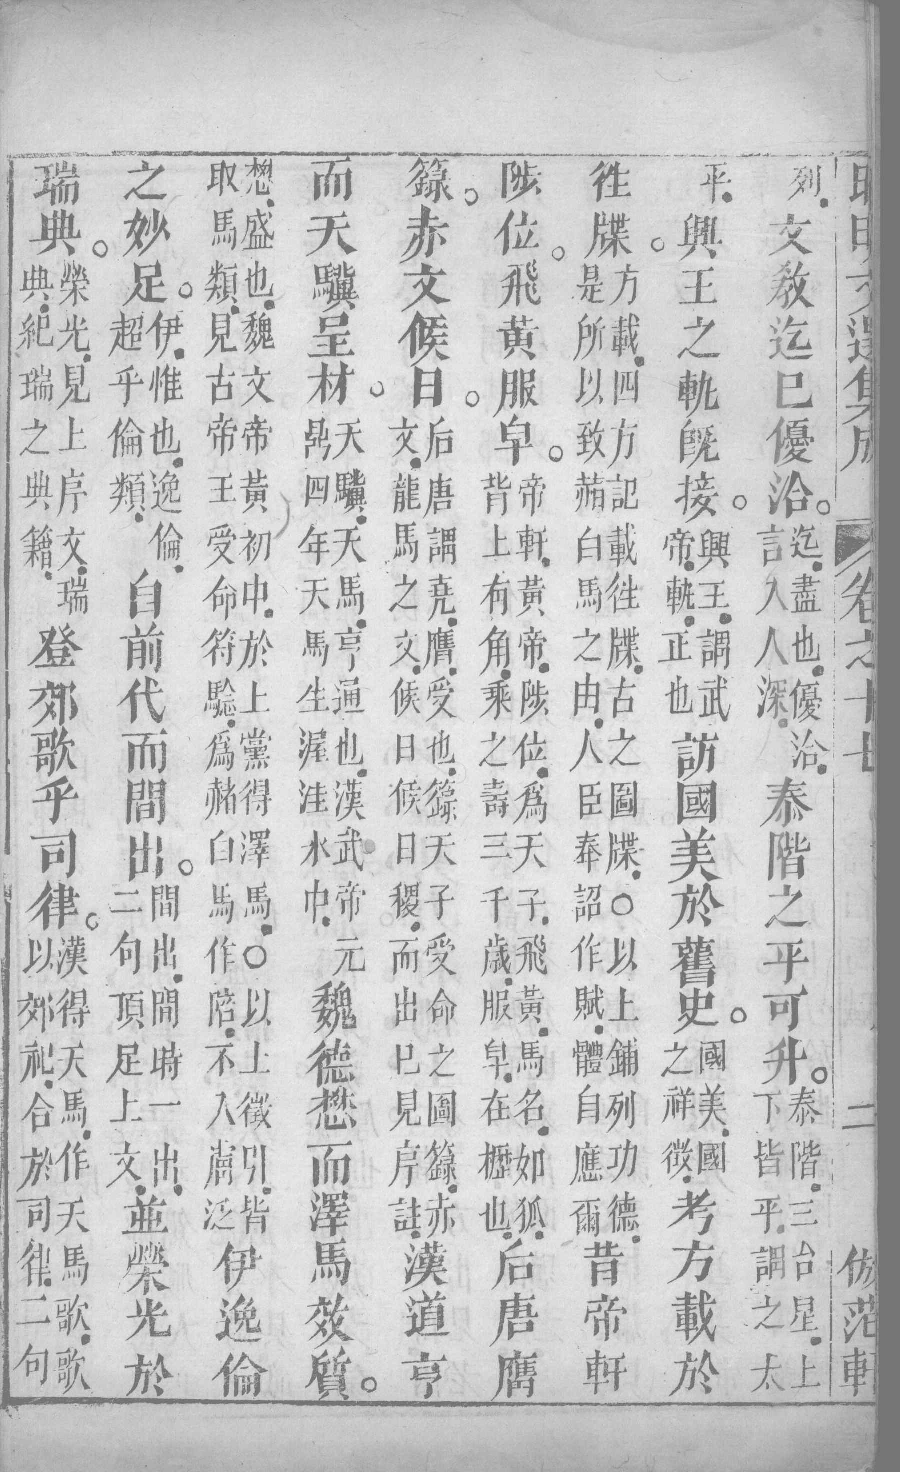 昭明文選集成　卷之十七　二　倣范軒
列文教迄已優洽。迄、盡也、優洽、言入人深、泰階之平可升。泰階、三台星、上下皆平、謂之太
平、興王之軌既接。興王、謂武帝、軌、正也訪國美於舊史。國美、國之祥徵、考方載於
徃牒。方載、四方記載徃牒、古之圖牒、○以上鋪列功德、是所以致赭白馬之由、人臣奉詔作賦、體自應爾昔帝軒
陟位。飛黃服皁。帝軒、黃帝、陟位、爲天子、飛黃、馬名、如狐、背上有角、乘之壽三千歲、服皁、在櫪也、后唐膺
籙。赤文候日。后唐謂堯、膺、受也、籙、天子受命之圖籙、赤文、龍馬之文、候日候日稷、而出已見序註、漢道亨
而天驥呈材。天驥、天馬、亨、通也、漢武帝元鼎四年天馬生渥洼水中、魏德楙而澤馬效質。
楙、盛也、魏文帝黃初中、於上黨得澤馬、○以上徵引、皆取馬類、見古帝王受命符驗、爲赭白馬作陪、不入膚泛伊逸倫
之妙足。伊、惟也、逸倫、超乎倫類、自前代而間出。間出、間時一出、二句頂足上文、並榮光於
瑞典。榮光、見上序文、瑞典、紀瑞之典籍、登郊歌乎司律。漢得天馬、作天馬歌、歌以郊祀、合於司律、二句